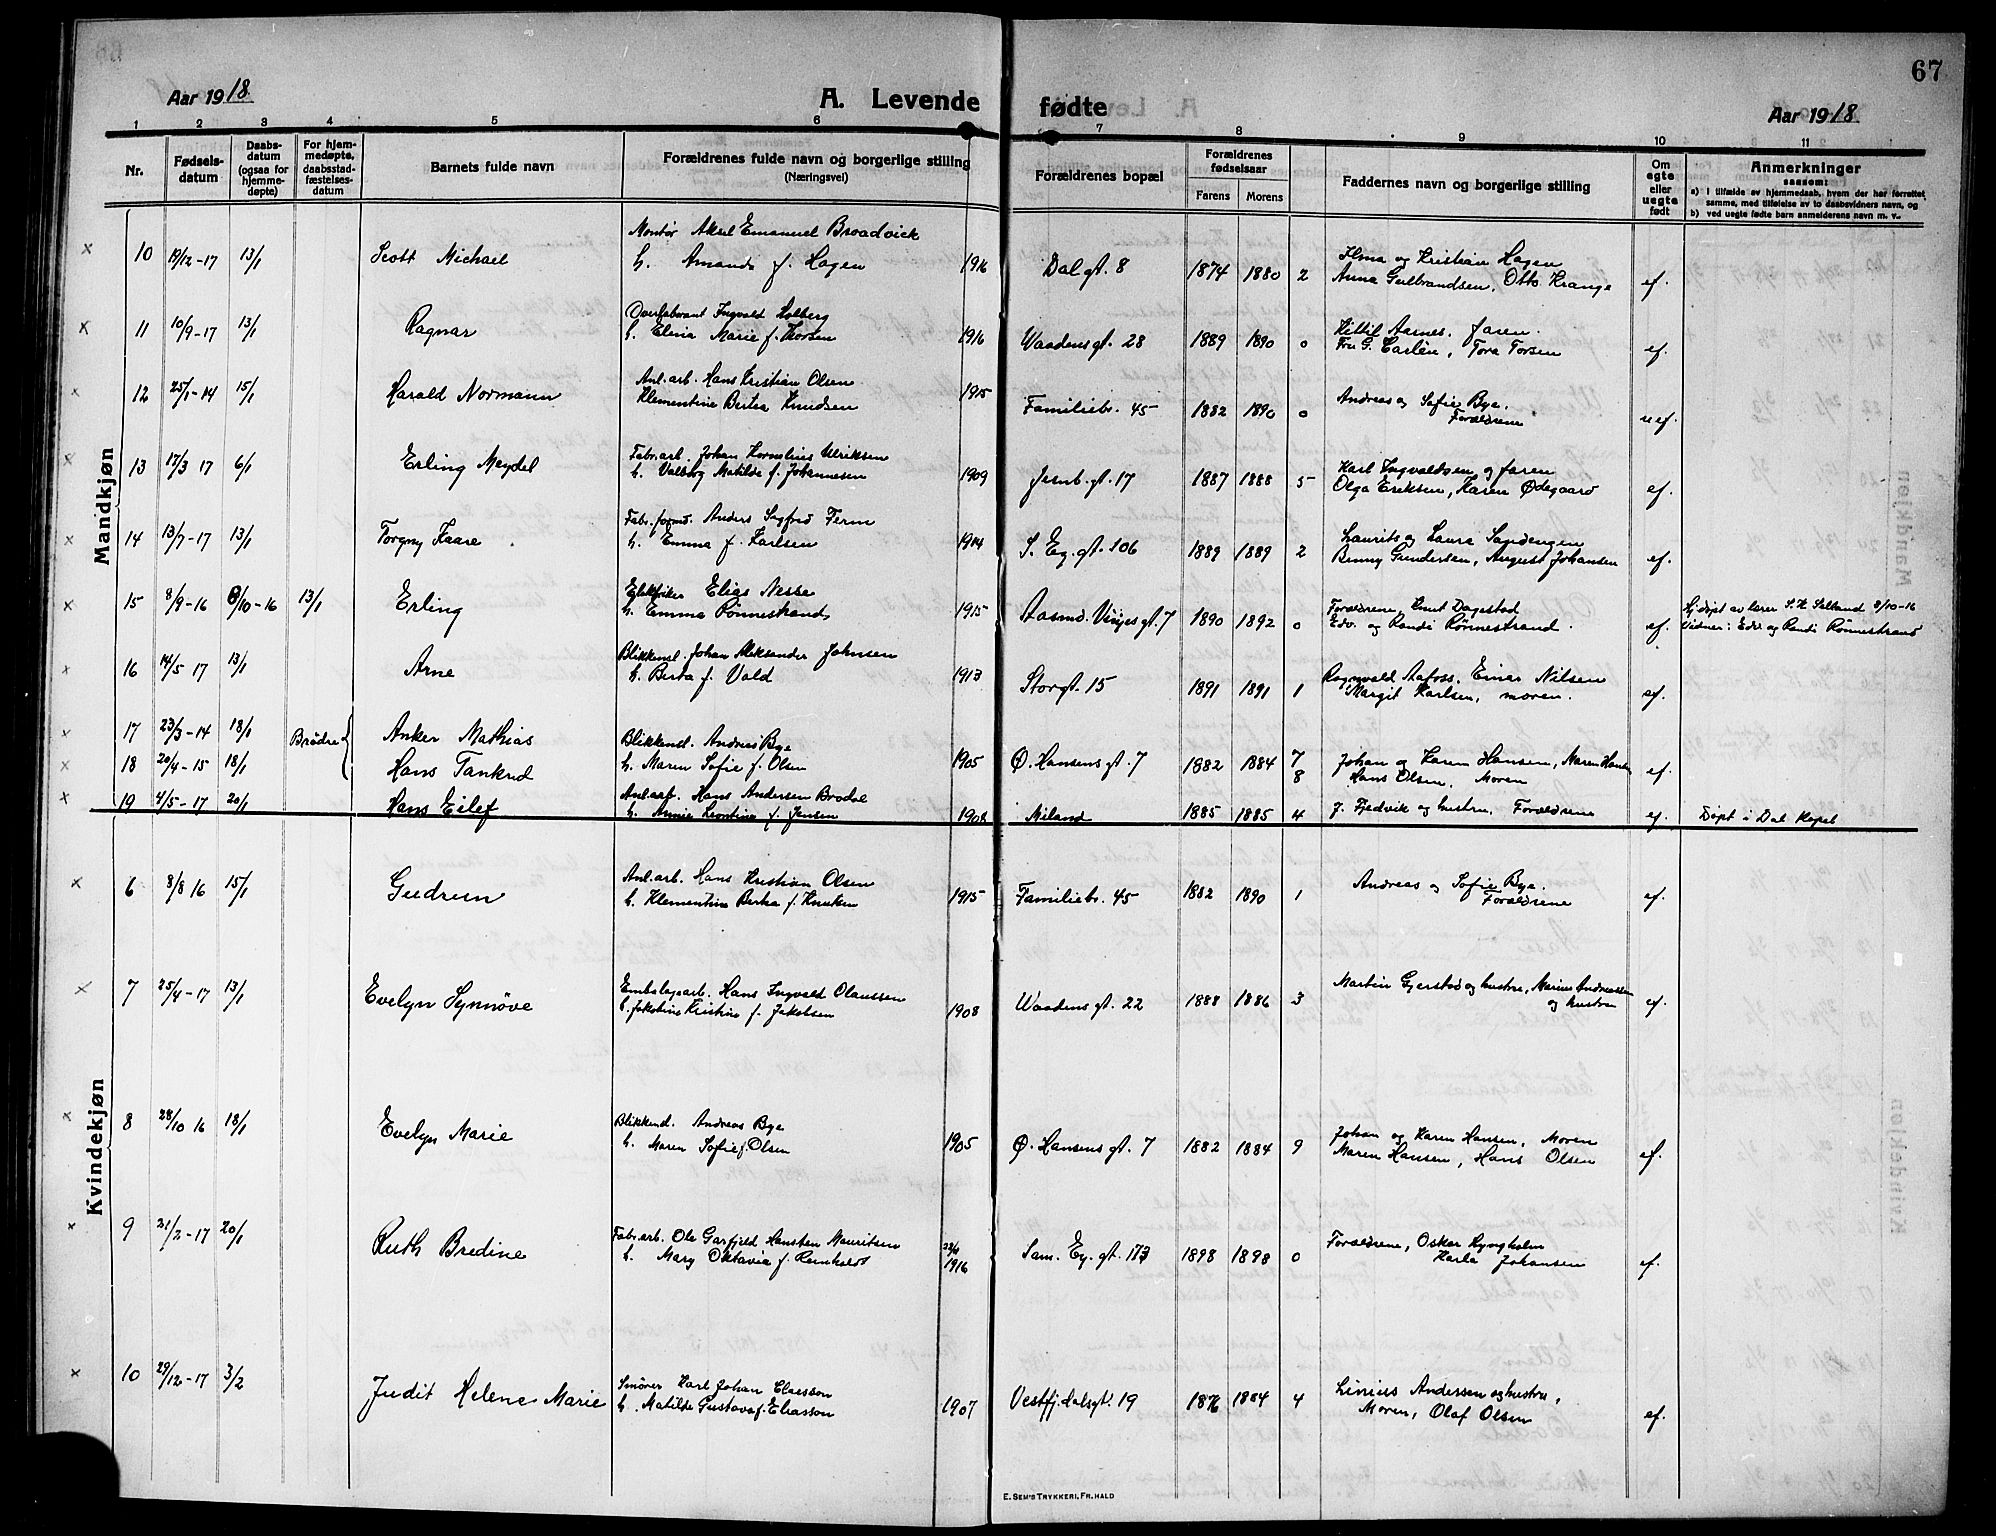 67
Aar 1918.
A. Levende fødte
Aar 1918
1 2 3 4 5 6 7 8 9 10 11
Nr.
Fødsels-datum
Daabs-datum (ogsaa for hjemme-døpte)
For hjem-medøpte, daabsstad-fæstelses-datum
Barnets fulde navn
Forældrenes fulde navn og borgerlige stilling (Næringsvei)
Forældrenes bopæl
Forældrenes fødselsaar
Farens Morens
Faddernes navn og borgerlige stilling
Om egte eller uegte født
Anmerkninger
saasom:
a) i tilfælde av hjemmedaab, hvem der har forrettet samme, med tilføielse av to daabsvidners navn, og
b) ved uegte fødte barn anmelderens navn m. v.
Mandkjøn
Montør Aksel Emanuel Broadvick
10 19/12-17 13/1 Scott Michael h. Amanda f. Hagen 1916 Dal gt. 8 1874 1880 2 og Kristian Hagen
Anna Gulbrandsen, Otto Krange ef.
Ingvald Holberg
11 10/9-17 13/1 Ragnar h. Elina Marie f. Thorsen 1916 Waadens gt. 28 1889 1890 0 Kittil Aarnes, faren.
Fru G. Carlén, Tora Torsen ef.
Anl. arb. Hans Kristian Olsen
12 25/1-14 15/1 Harald Normann Klementine Berta Knudsen 1915 Familiebr. 45 1882 1890 0 Andreas og Sofie Bye.
Forældrene uef.
Fabr. arb. Johan Kornelius Ulriksen
13 17/3 17 6/1 Erling Meydel h. Valborg Matilde f. Johannesen 1909 Jernb. gt. 17 1887 1888 5 Karl Ingvaldsen og faren
Olga Eriksen, Karen Ødegaard ef.
Fabr. formd. Anders Sigfred Ferm
14 13/7-17 13/1 Torgny Kaare h. Emma f. Karlsen 1914 S. Ey. gt. 106 1889 1889 2 Laurits og Laura Sandengen
Benny Gundersen, August Johansen ef.
Elias Nesse
15 8/9-16 8/10-16 13/1 Erling h. Emma Rønnestrand 1915 Aasmd. Vinjes gt. 7 1890 1892 0 Forældrene, Knut Dagestad
Edv. og Randi Rønnestrand. ef. Hj.døpt av lærer S. K. Selland 8/10-16
Vidner: Edv. og Randi Rønnestrand
Blikkensl. Johan Aleksander Johnsen
16 14/5 17 13/1 Arne h. Berta f. Vold 1913 Storgt. 15 1891 1891 1 Ragnvald Aafoss, Einar Nilsen
Margit Karlsen, moren. ef.
17 23/3-14 18/1 Brødre Anker Mathias Blikkensl. Andreas Bye
18 20/4-15 18/1 Hans Tankred h. Maren Sofie f. Olsen 1905 Ø. Hansens gt. 7 1882 1884 7 8 Johan og Karen Hansen, Maren Hansen
Hans Olsen, Moren ef.
Anl. arb. Hans Andersen Brodal
19 4/5-17 20/1 Hans Eilef h. Annie Leontine f. Jensen 1908 Miland 1885 1885 4 J. Fjedvik og hustru, Forældrene ef. Døpt i Dal Kapel
Kvindekjøn
Anl. arb. Hans Kristian Olsen
6 8/8 16 15/1 Gudrun h. Klementine Berta f. Knutsen 1915 Familiebr. 45 1882 1890 1 Andreas og Sofie Bye.
Forældrene ef.
Embalagearb. Hans Ingvald Olaussen
7 25/4-17 13/1 Evelyn Synnøve h. Jakobine Kristine f. Jakobsen 1908 Waadens gt. 22 1888 1886 3 Martin Gjerstad og hustru, Marius Andreassen
og hustru ef.
Blikkensl. Andreas Bye
8 28/10 16 18/1 Evelyn Marie h. Maren Sofie f. Olsen 1905 Ø. Hansens gt. 7 1882 1884 9 Johan og Karen Hansen, Moren
Maren Hansen, Hans Olsen ef.
Fabr. arb. Ole Garfjeld Hansten Mauritsen
9 21/2-17 20/1 Ruth Bredine h. Mary Oktavia f. Reinholdt 1916 Sam. Ey. gt. 173 1898 1898 0 Forældrene, Oskar Ryngholm
Karla Johansen ef.
Smører Karl Johan Claesson
10 29/12-17 3/2 Judit Helene Marie h. Matilde Gustava f. Eliasson 1907 Vestfjdalsgt. 19 1876 1884 4 Linius Andersen og hustru,
Moren, Olaf Olsen ef.
E. SEM'S TRYKKERI, FR. HALD